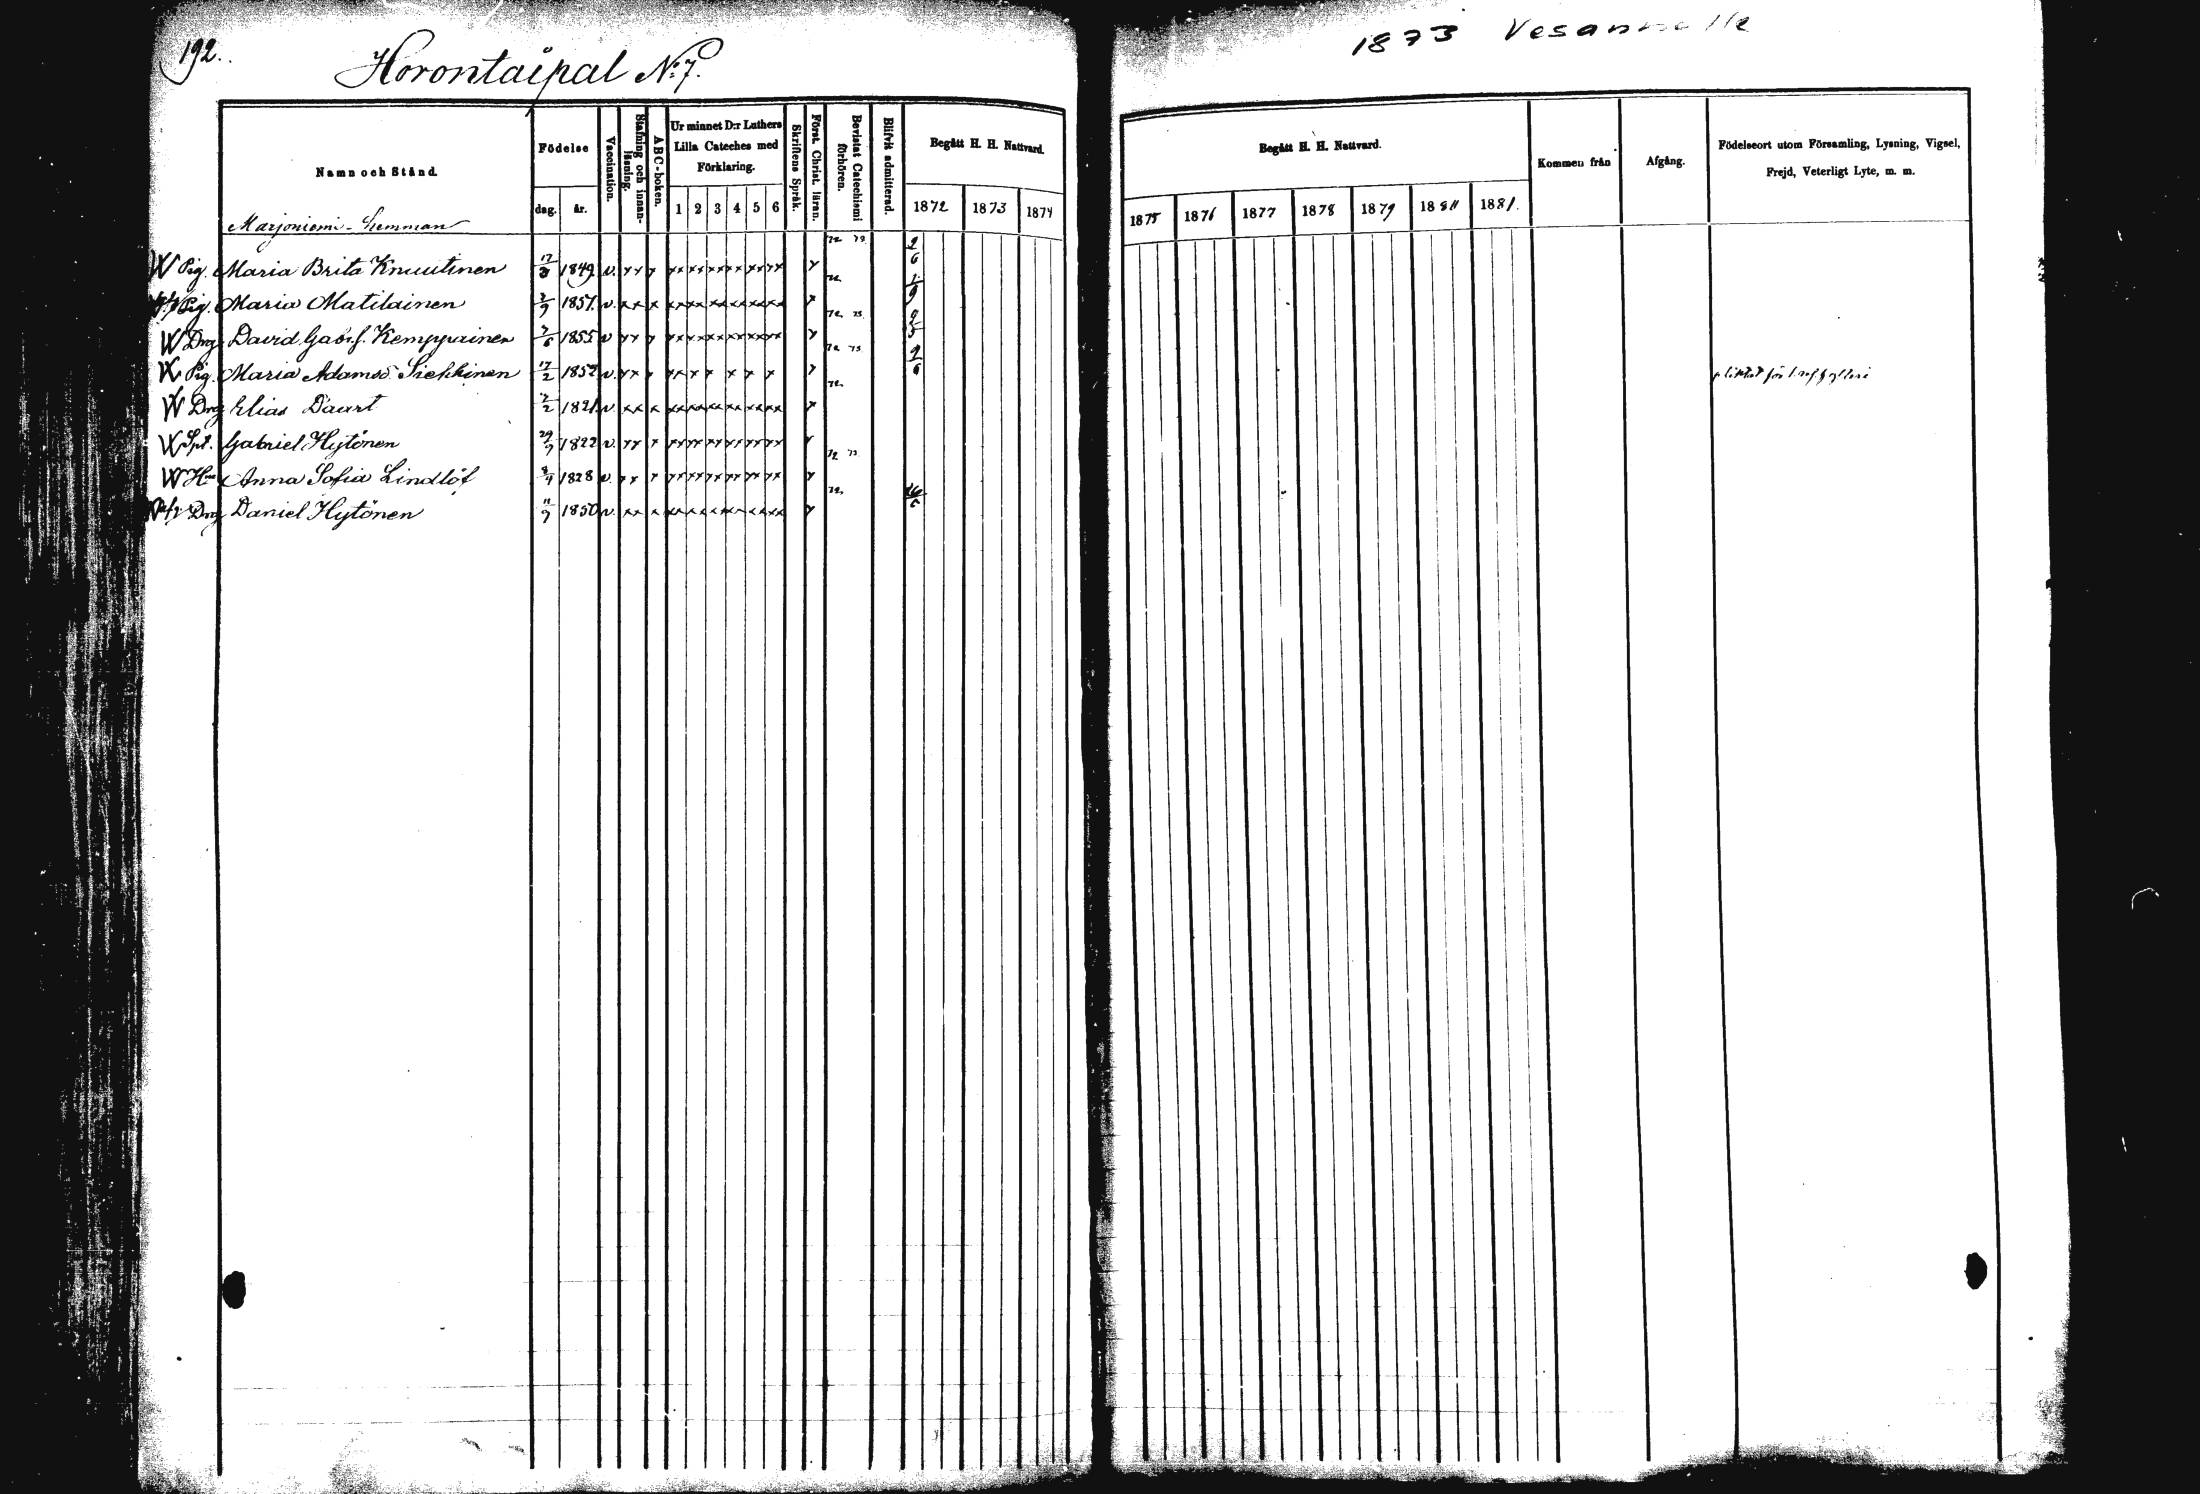 192.
Horontaipal No 7.
1873 Vesannolle
Namn och Stånd.
Födelse
dag.
år.
Vaccination.
Stafning och innan-
läsning.
ABC-boken.
Ur minnet D:r Luthers
Lilla Cateches med
Förklaring.
1 2 3 4 5 6
Skriftens Språk.
Först. Christ. läran.
Bevistat Catechismi
förhören.
Blifvit admitterad.
Begått H. H. Nattvard.
1872 1873 1874
Begått H. H. Nattvard.
1875 1876 1877 1878 1879 1880 1881.
Kommen från
Afgång.
Födelseort utom Församling, Lysning, Vigsel,
Frejd, Veterligt Lyte, m. m.
Marjoniemi - hemman
72 73
W Pig. Maria Brita Knuutinen 17/8 1849 v. 2/6
72
Pig. Maria Matilainen 2/9 1851 v. 1/9
72 73
W Drg David Gabr.f. Kemppainen 1855 v.
72 73
W Pig. Maria Adamsd. Siekkinen 17/2 1852 v. 9/6
72
W Drg Elias Daurt 1821 v.
W Spt. Gabriel Hytönen 29/7 1822 v.
72 73
W Hu Anna Sofia Lindlöf 8/4 1828 v.
72.
Drg Daniel Hytönen 11/7 1850 v. 16/6